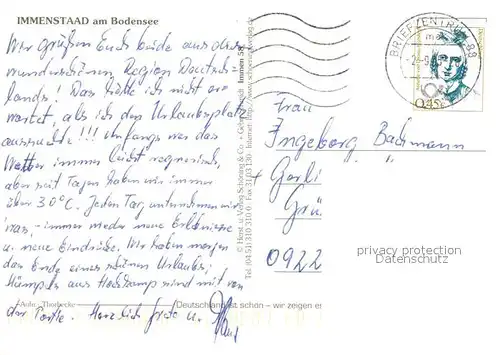 IMMENSTAAD am Bodensee
Wir grüßen Euch beide aus dieser
wunderschönen Region Deutsch-
lands! Das hätte ich nicht er-
wartet, als ich den Urlaubsplatz
aussuchte!!! Anfangs war das
Wetter immer leicht regnerisch,
aber seit Tagen haben wir immer
über 30°C. Jeden Tag unternehmen wir
was, immer wieder neue Erlebnisse
u. neue Eindrücke. Wir haben morgen
das Ende eines schönen Urlaubs,
aus sind mit von
der Partie. Herzlich grüße u.
Aufn.: Thorbecke
Deutschland ist schön – wir zeigen es
© Horst u. Verlag Schöning & Co · Gebr. Schmidt Immen 58
Tel. (04 51) 310 310 Fax 31 03 130 Internet http://www.schoening-verlag.de
BRIEFZENTRUM 88
0,45€
Frau
Ingeborg Bachmann
Grü
0922
privacy protection
Datenschutz